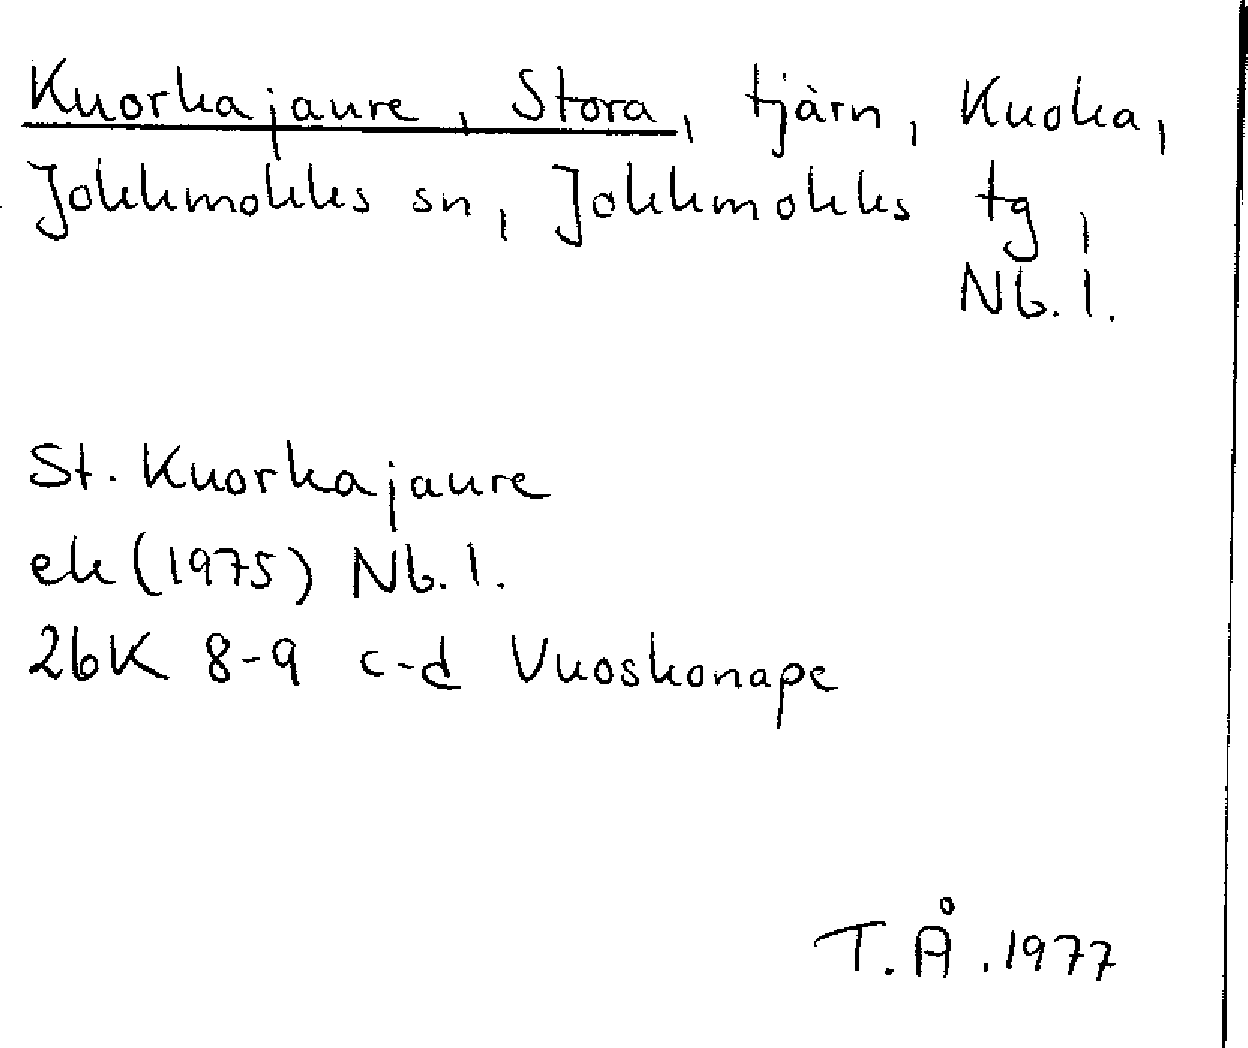 Kuorkajaure, Stora, tjärn, Kuoka,
Jokkmokks sn, Jokkmokks tg,
Nb. l.
St. Kuorkajaure
ek (1975) Nb. l.
26K 8-9 c-d Vuoskonape
T.Å. 1977